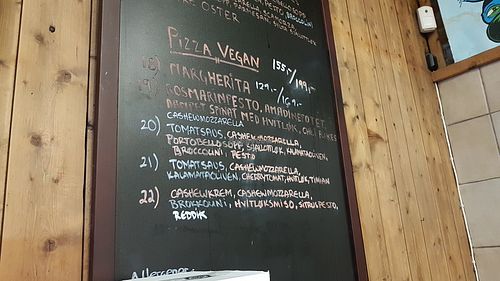 TRE OSTER
PIZZA VEGAN 155,-/199,-
18) MARGHERITA 129,-/169,-
19) ROSMARINPESTO, AMANDINEPOTET,
DAMPET SPINAT MED HVITLØK, CHILIFLAKES
CASHEWMOZZARELLA
20) TOMATSAUS, CASHEWMOZZARELLA,
PORTOBELLOSOPP, SJALOTTLØK, KALAMATAOLIVEN,
BROCCOLINI, PESTO
21) TOMATSAUS, CASHEWMOZZARELLA,
KALAMATAOLIVEN, CHERRYTOMAT, HVITLØK, TIMIAN
22) CASHEWKREM, CASHEWMOZZARELLA,
BROKKOLINI, HVITLØKSMISO, SITRUSPESTO,
REDDIK
Allergener